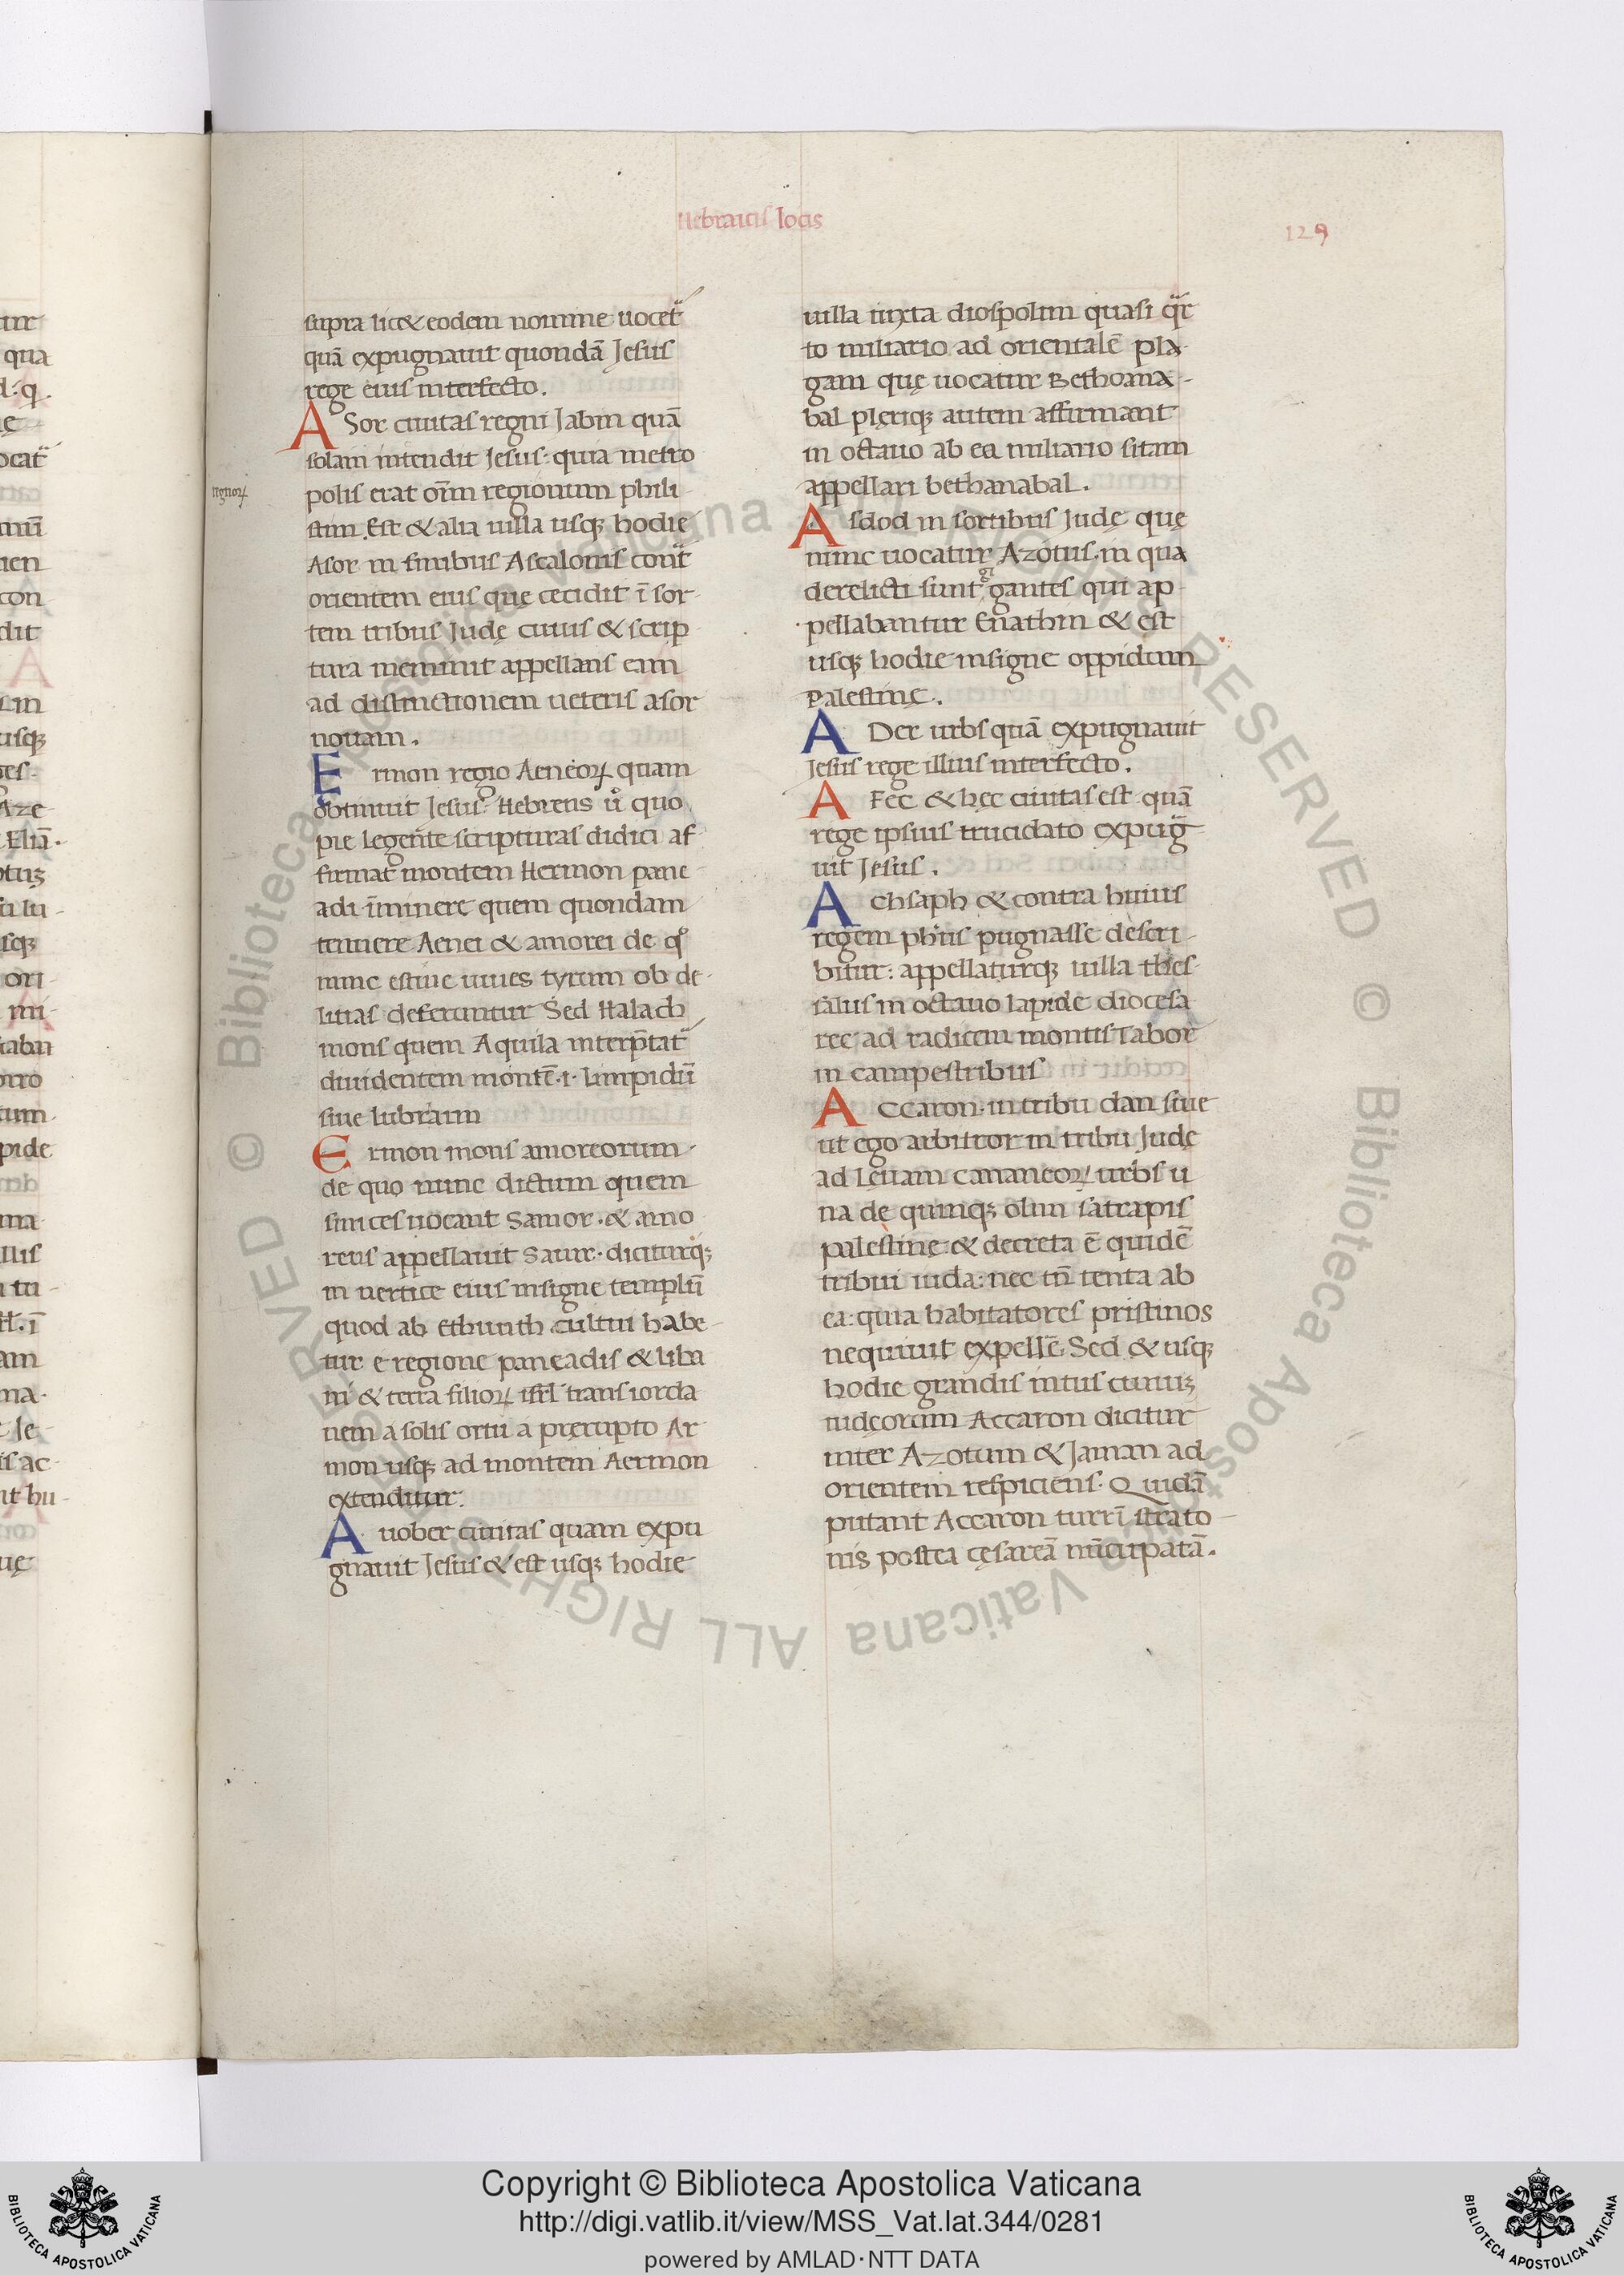 Hebraicis locis
129
supra lic& eodem nomine uocet̄
quā expugnauit quondā Jesus
rege eius interfecto.
ASor ciuitas regni Jabin quā
solam incendit Jesus: quia metro
polis erat oīm regionum phili
stim. Est & alia uilla usqꝫ hodie
Asor in finibus Ascalonis cont̄
orientem eius quę cecidit ī sor-
tem tribus Judę cuius & scrip
tura meminit appellans eam
ad distinctionem ueteris asor
nouam.
Ermon regio Aeneoꝝ quam
obtinuit Jesus. Hebreus ů quo
pre legente scripturas didici af
firmat̄ montem Hermon pane
adi īminere quem quondam
tenuere Aenei & amorei de qͦ
nunc estiue niues tyrum ob de-
litias deferuntur Sed Halach
mons quem Aquila interp̄tat̄
diuidentem montē .i. limpidū
siue lubraim
Ermon mons amoreorum
de quo nunc dictum quem
finices uocant Sanior. & amo
reus appellauit Sanir. diciturqꝫ
in uertice eius insigne templū
quod ab Ethinith cultui habe-
tur e regione paneadis & liba
ni & terra filioꝝ isrl̄ trans iorda
nem a solis ortu a pręcipto Ar
mon usqꝫ ad montem Aermon
extenditur.
Anober ciuitas quam expu
gnauit Jesus & est usqꝫ hodie
uilla iuxta diospolim quasi qͣr
to miliario ad orientalē pla-
gam quę uocatur Bethoana-
bal plęriqꝫ autem affirmant
in octauo ab ea miliario sitam
appellari bethanabal.
Asdod in sortibus Judę quę
nunc uocatur Azotus. in qua
derelicti sunt gi gantes qui ap
pellabantur Enathin & est
usqꝫ hodie insigne oppidum
Palestinę.
ADer urbs quā expugnauit
Jesus rege illius interfecto.
AFec & hęc ciuitas est quā
rege ipsius trucidato expugͣ
uit Jesus.
Achsaph & contra huius
regem phīus pugnasse descri-
bitur: appellaturqꝫ uilla thes-
salus in octauo lapide diocesa
ree ad radicem montis Tabor
in campestribus
ACcaron. in tribu dan siue
ut ego arbitror in tribu Judę
ad Lęuam cananeoꝝ urbs u
na de quinqꝫ olim satrapis
palestinę & decreta ē quidē
tribui iuda: nec tn̄ tenta ab
ea: quia habitatores pristinos
nequiuit expellē. Sed & usqꝫ
hodie grandis uicus ciuiuꝫ
iudęorum Accaron dicitur
inter Azotum & Jaman ad
orientem respiciens. Quidā
putant Accaron turrī strato
nis postea cęsareā nūcupatā.
Copyright © Biblioteca Apostolica Vaticana
http://digi.vatlib.it/view/MSS_Vat.lat.344/0281
powered by AMLAD·NTT DATA
BIBLIOTECA APOSTOLICA VATICANA
BIBLIOTECA APOSTOLICA VATICANA
© Biblioteca Apostolica Vaticana ALL RIGHTS RESERVED © Biblioteca Apostolica Vaticana ALL RIGHTS RESERVED